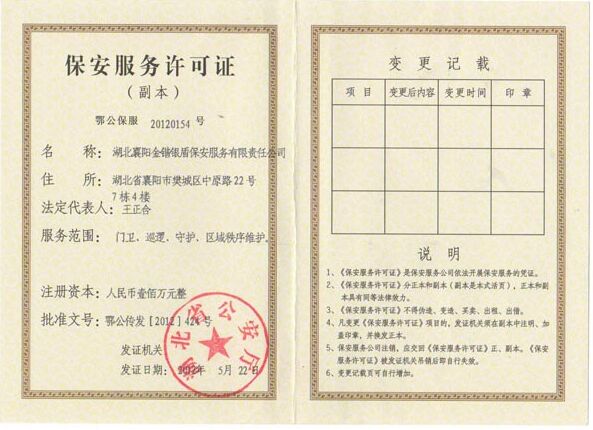 保安服务许可证
（副本）
鄂公保服 20120154 号
名 称：湖北襄阳金锴银盾保安服务有限责任公司
住 所：湖北省襄阳市樊城区中原路22号
7栋4楼
法定代表人：王正合
服务范围：门卫、巡逻、守护、区域秩序维护。
注册资本：人民币壹佰万元整
批准文号：鄂公传发[2012]424号
发证机关
发证日期：2012年 5月 22日
湖北省公安厅
变更记载
项 目 变更后内容 变更时间 印 章
说明
1、《保安服务许可证》是保安服务公司依法开展保安服务的凭证。
2、《保安服务许可证》分正本和副本（副本是本式活页），正本和副
本具有同等法律效力。
3、《保安服务许可证》不得伪造、变造、买卖、出租、出借。
4、凡变更《保安服务许可证》项目的，发证机关须在副本中注明、加
盖印章，并换发正本。
5、保安服务公司注销，应交回《保安服务许可证》正、副本。《保安
服务许可证》被发证机关吊销后即自行失效。
6、变更记载页可自行增加。